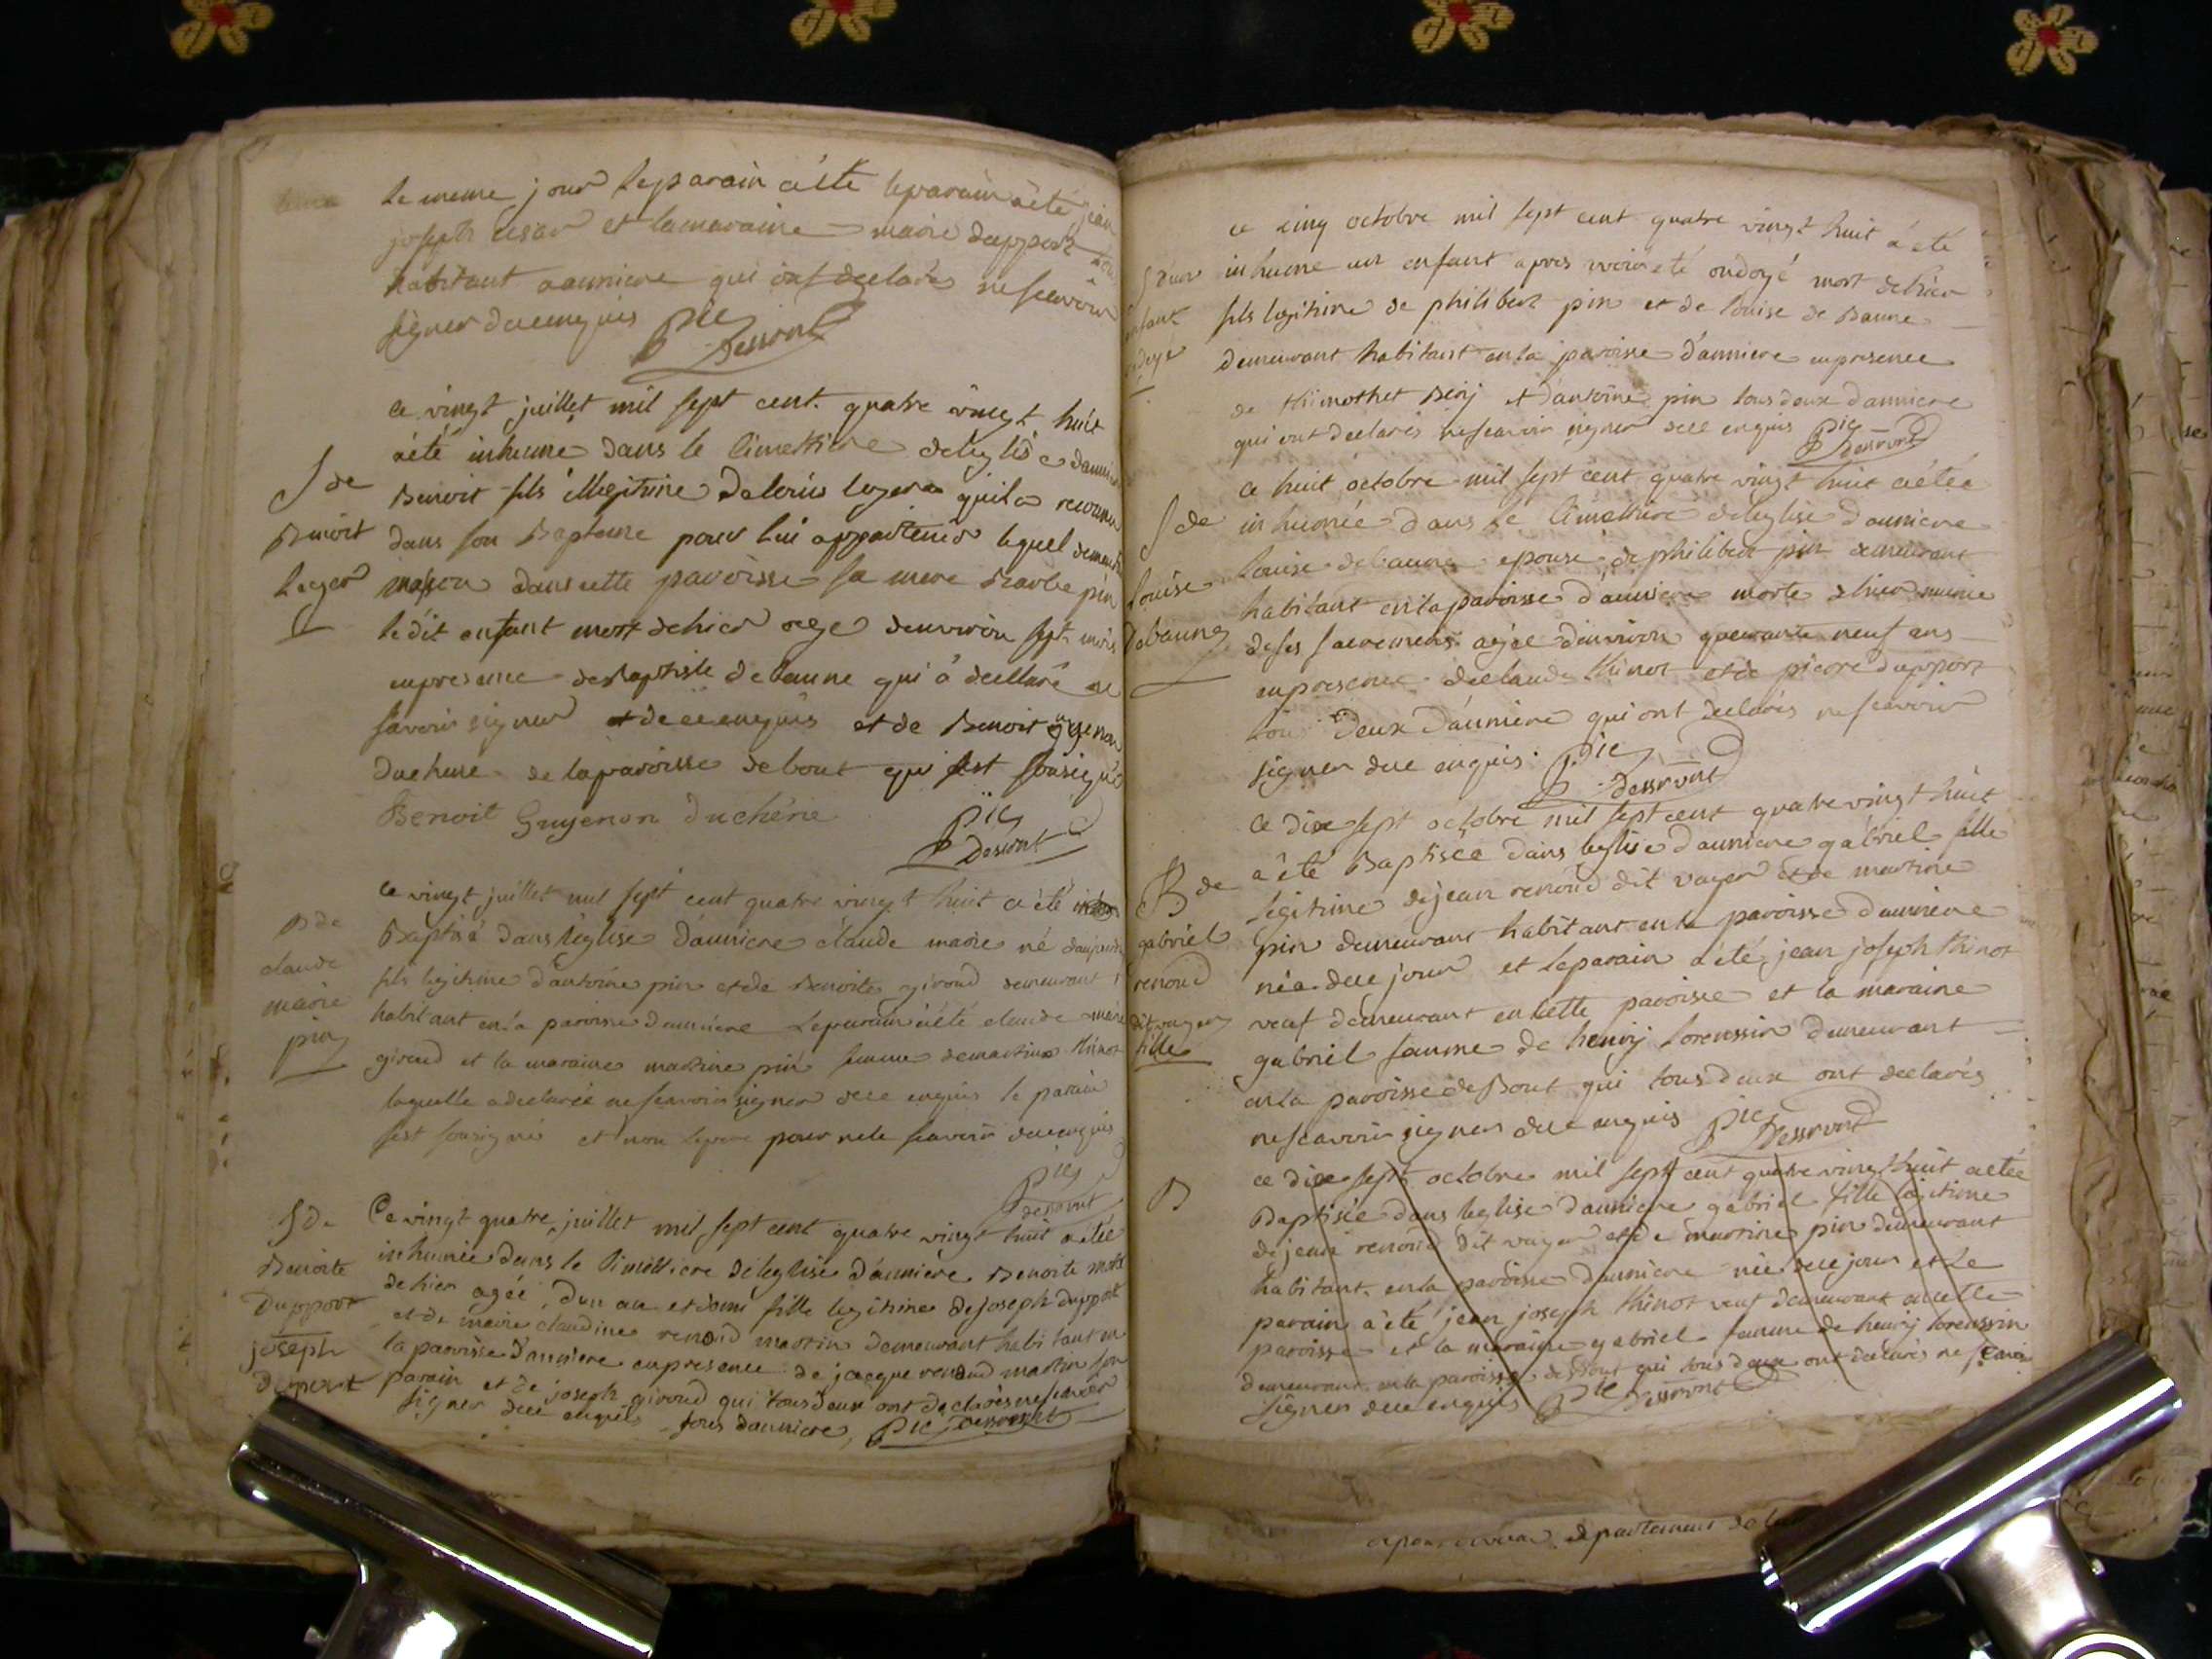 le meme jour leparain aété leparain aété jean
joseph cesar et lamaraine marie dupport
habitant aauniere qui ont declarés nescavoir
signer dece enquis Pic
Dessront
ce vingt juillet mil sept cent quatre vingt huit
aété inhumé dans le Cimettiere deleglise dauniere
J de
Benoit
Leger
Benoit fils illegitime delouis leger quila reconnu
dans son Baptaine pour lui appartenir lequel demeure
maison dans cette paroisse sa mere Barbe pin
ledit enfant mort dehier age denviron sept mois
enpresence deBaptiste debaune qui a decllaré ne
savoir signer et de ce enquis et de Benoit guyenon
Duchene de laparoisse debout qui sest sousigné
Benoit Guyenon Duchêne
Pic
Dessront
ce vingt juillet mil sept cent quatre vingt huit a été
B de
claude
marie
pin
Baptisé dans léglise dauniere claude marie né
fils legitime dantoine pin et de Benoite giroud demeurant
habitant enla paroisse dauniere Leparain aété claude marie
giroud et la maraine martine pin femme demartin thinot
laquelle adeclarée nescavoir signer dece enquis le parain
sest sousigné et non lepere pour nele scavoir dece enquis
Pic
dessront
J de
Benoite
Dupport
joseph
duport
Ce vingt quatre juillet mil sept cent quatre vingt huit aétée
inhumée dans le Cimettiere deleglise dauniere Benoite morte
de hier agée dun an et demi fille legitime dejoseph dupport
et de marie claudine renoud martin demeurant habitant en
la paroisse dauniere enpresence de jacque renoud martin son
parain et de joseph giroud qui tous deux ont declarés ne scavoir
signer dece enquis tous dauniere Pic Dessront
ce cinq octobre mil sept cent quatre vingt huit a été
J dun
enfant
inhumé un enfant apres avoir été ondoyé mort dehier
fils legitime de philibert pin et de louise de Baune
demeurant habitant enla paroisse dauniere enpresence
de thimothet Berj et dantoine pin tous deux dauniere
qui ont declarés nescavoir signer dece enquis Pic
Dessront
ce huit octobre mil sept cent quatre vingt huit aétée
J de
louise
debaune
inhumée dans le Cimettiere deleglise dauniere
louise debaune epouse de philibert pin demeurant
habitant enlaparoisse dauniere morte dhier munie
deses sacremens agée denviron quarante neuf ans
enpresence declaude thinot et de pierre dupport
tous deux dauniere qui ont declarés nescavoir
signer dece enquis Pic
Dessront
ce dixe sept octobre mil sept cent quatre vingt huit
a été Baptisée dans leglise dauniere gabriel fille
B de
gabriel
renoud
dit vayer
fille
legitime dejean renoud dit vayer et de martine
pin demeurant habitant enla paroisse dauniere
née dece jour et leparain a été jean joseph thinot
veuf demeurant encette paroisse et la maraine
gabriel femme de henrij lorenssin demeurant
enla paroisse deBout qui tous deux ont declarés
nescavoir signer dece enquis Pic
Dessront
B
ce dixe sept octobre mil sept cent quatre vingt huit aétée
Baptisée dans leglise dauniere gabriel fille legitime
dejean renoud dit vayer et de martine pin demeurant
habitant enla paroisse dauniere née dece jour et le
parain a été jean joseph thinot veuf demeurant encette
paroisse et la maraine gabriel femme de henrij lorenssin
demeurant enla paroisse deBout qui tous deux ont declarés ne scavoir
signer dece enquis Pic Dessront
departement de